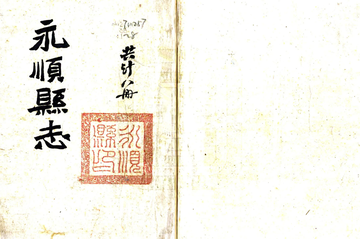 永順縣志
共計八冊
永順
縣印